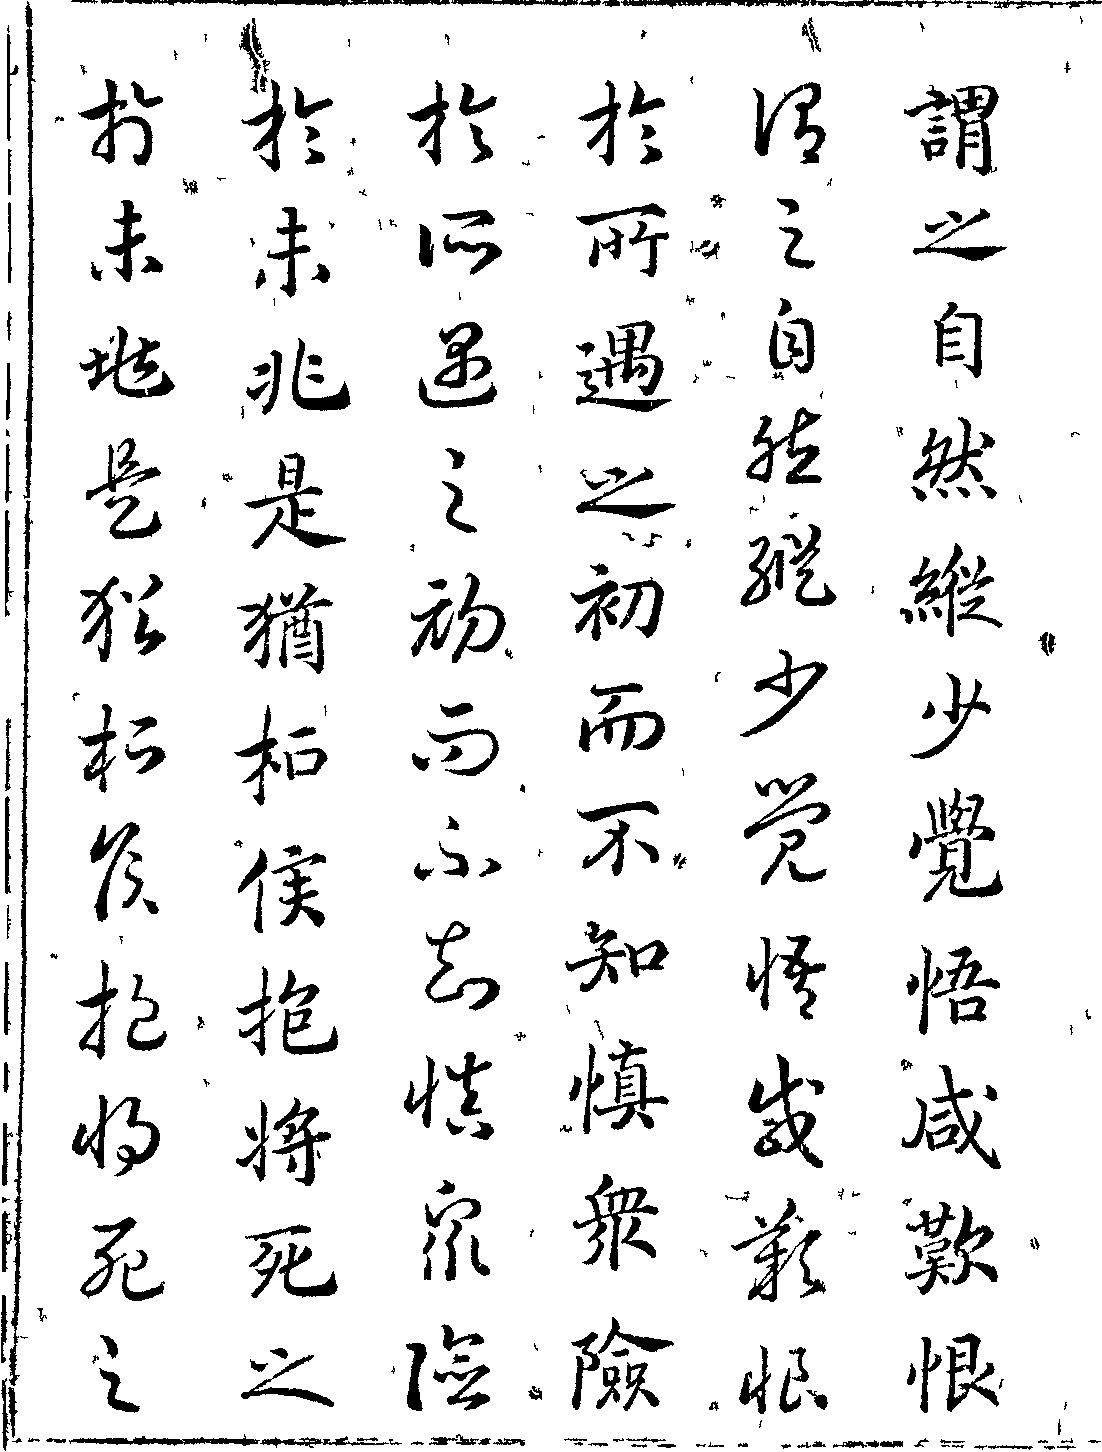 謂之自然縱少覺悟咸歎恨
謂之自然縱少覺悟咸歎恨
於所遇之初而不知慎衆險
於所遇之初而不知慎衆險
於未兆是猶桓侯抱將死之
於未兆是猶桓侯抱將死之